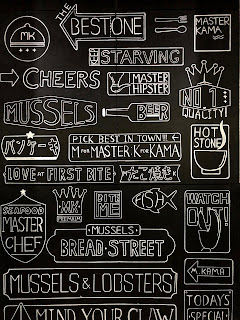 MK
THE
BESTONE
MASTER
KAMA
STARVING
CHEERS
MASTER
HIPSTER
NO.1
QUALITY!
MUSSELS
BEER
パンケーキ
PICK BEST IN TOWN!!!
M FOR MASTER K FOR KAMA
HOT
STONE
LOVE AT FIRST BITE
たこ焼き
SEAFOOD
MASTER
CHEF
MK
PREMIUM
BITE
ME
FISH
WATCH
OUT!
MUSSELS
BREAD STREET
KAMA
MUSSELS & LOBSTERS
TODAYS
SPECIAL
MIND YOUR CLAW